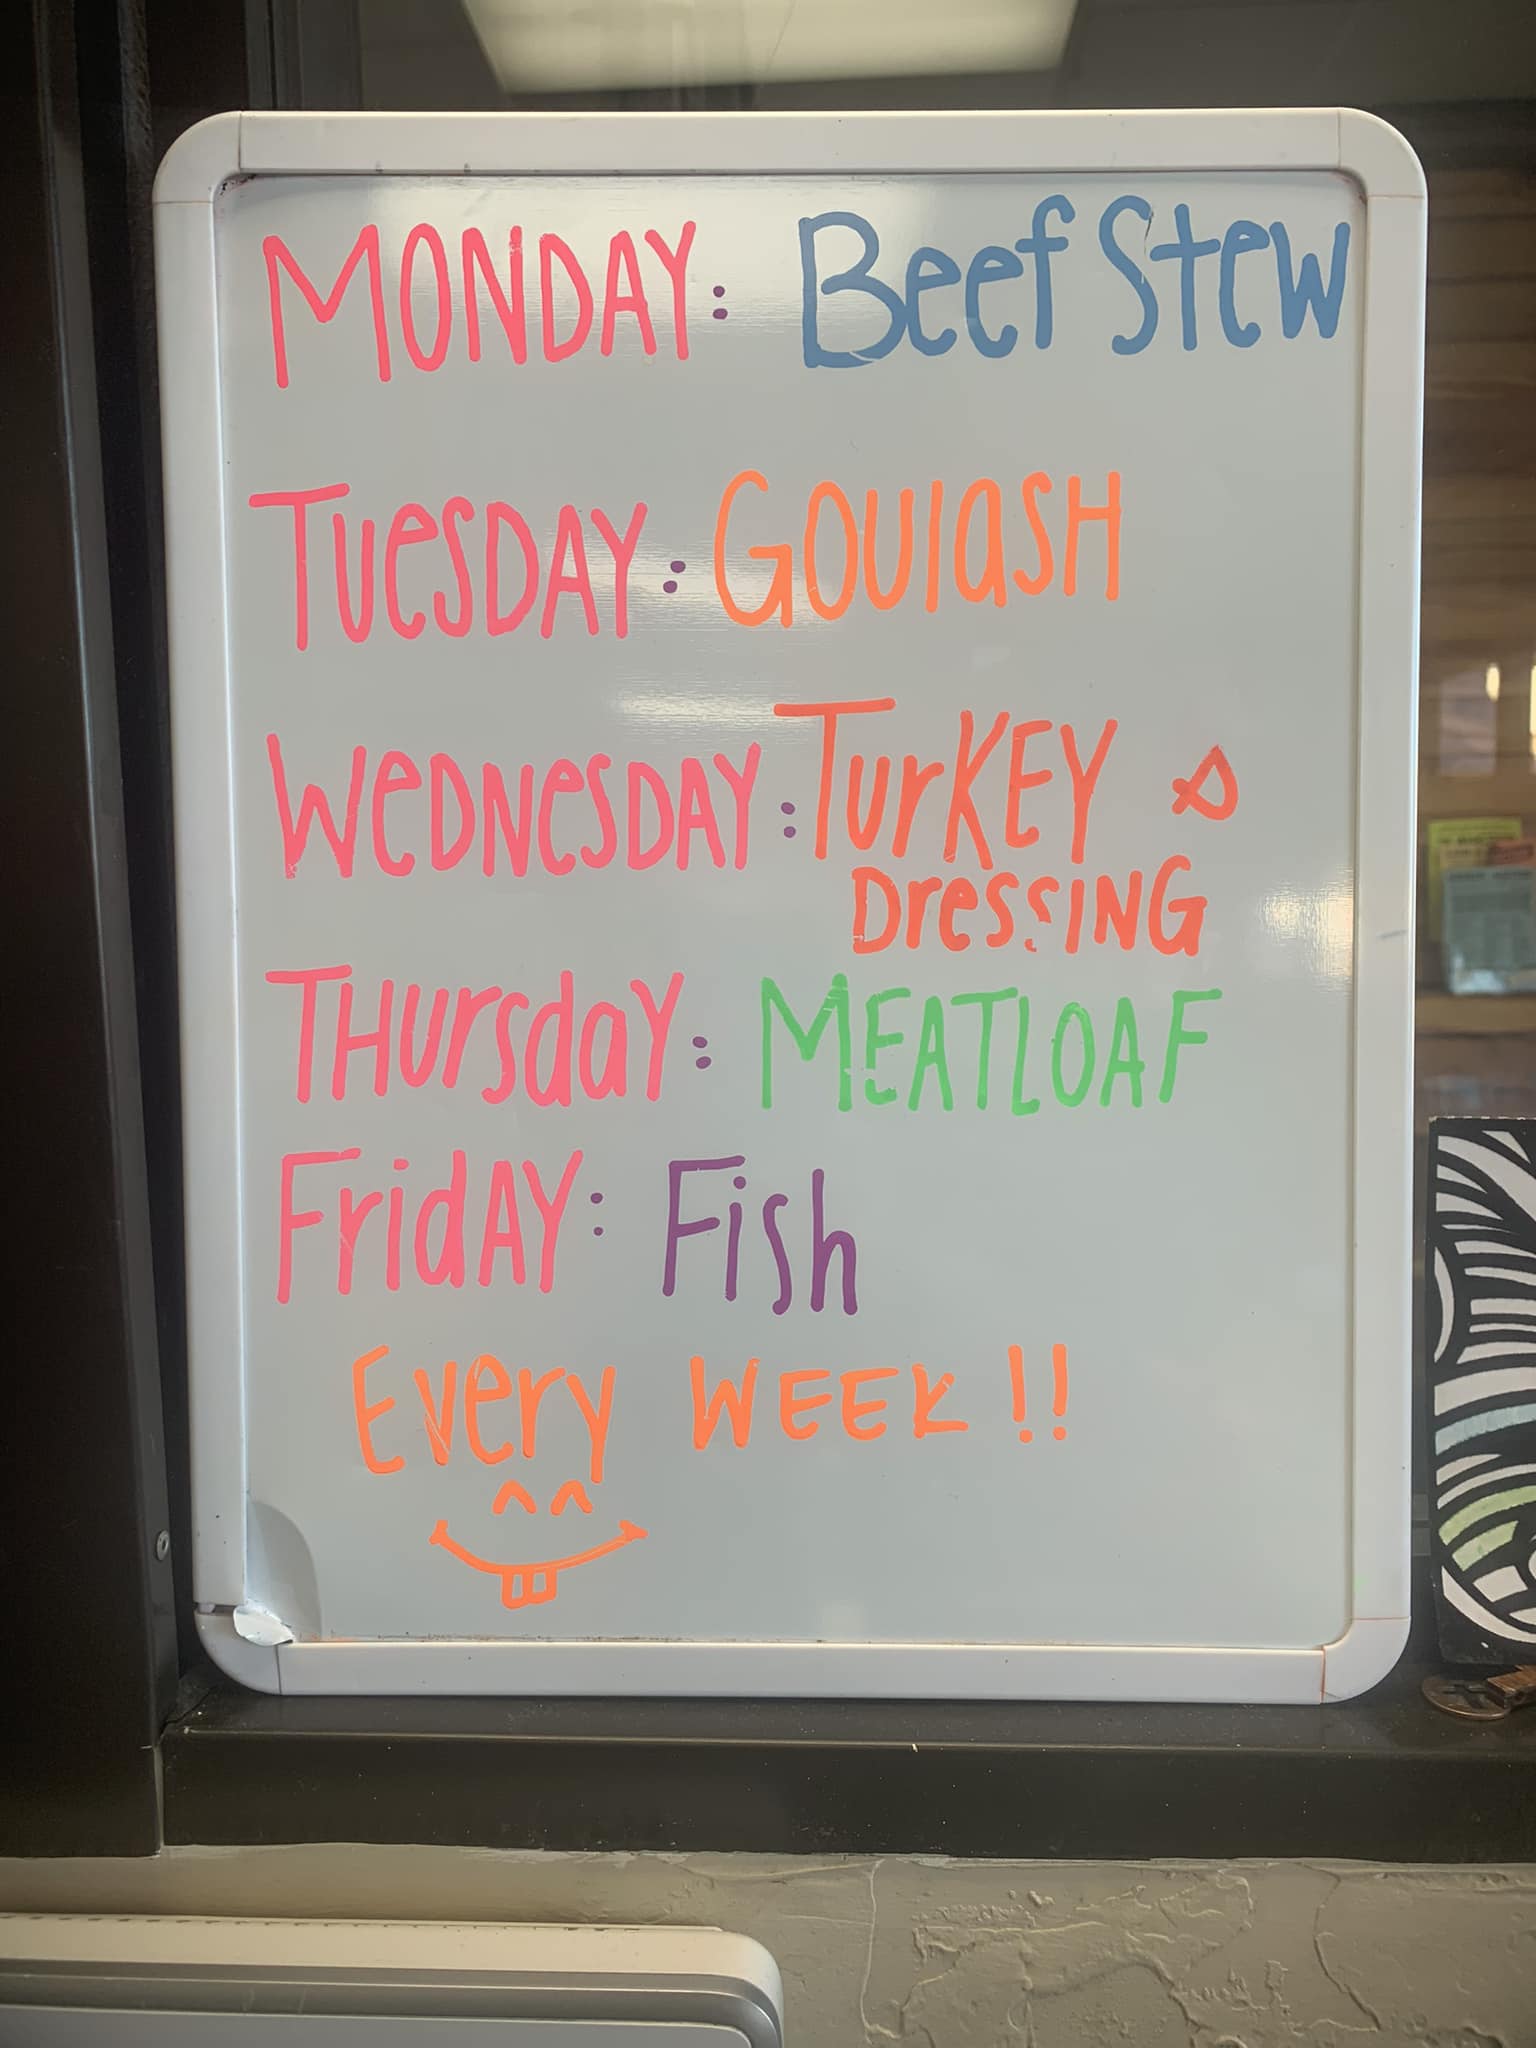 MONDAY: Beef Stew
TuesDAY: GOUlaSH
WeDNesDAY: TurKEY &
DressING
THursdaY: MEATLOAF
FridAY: Fish
Every WEEK!!